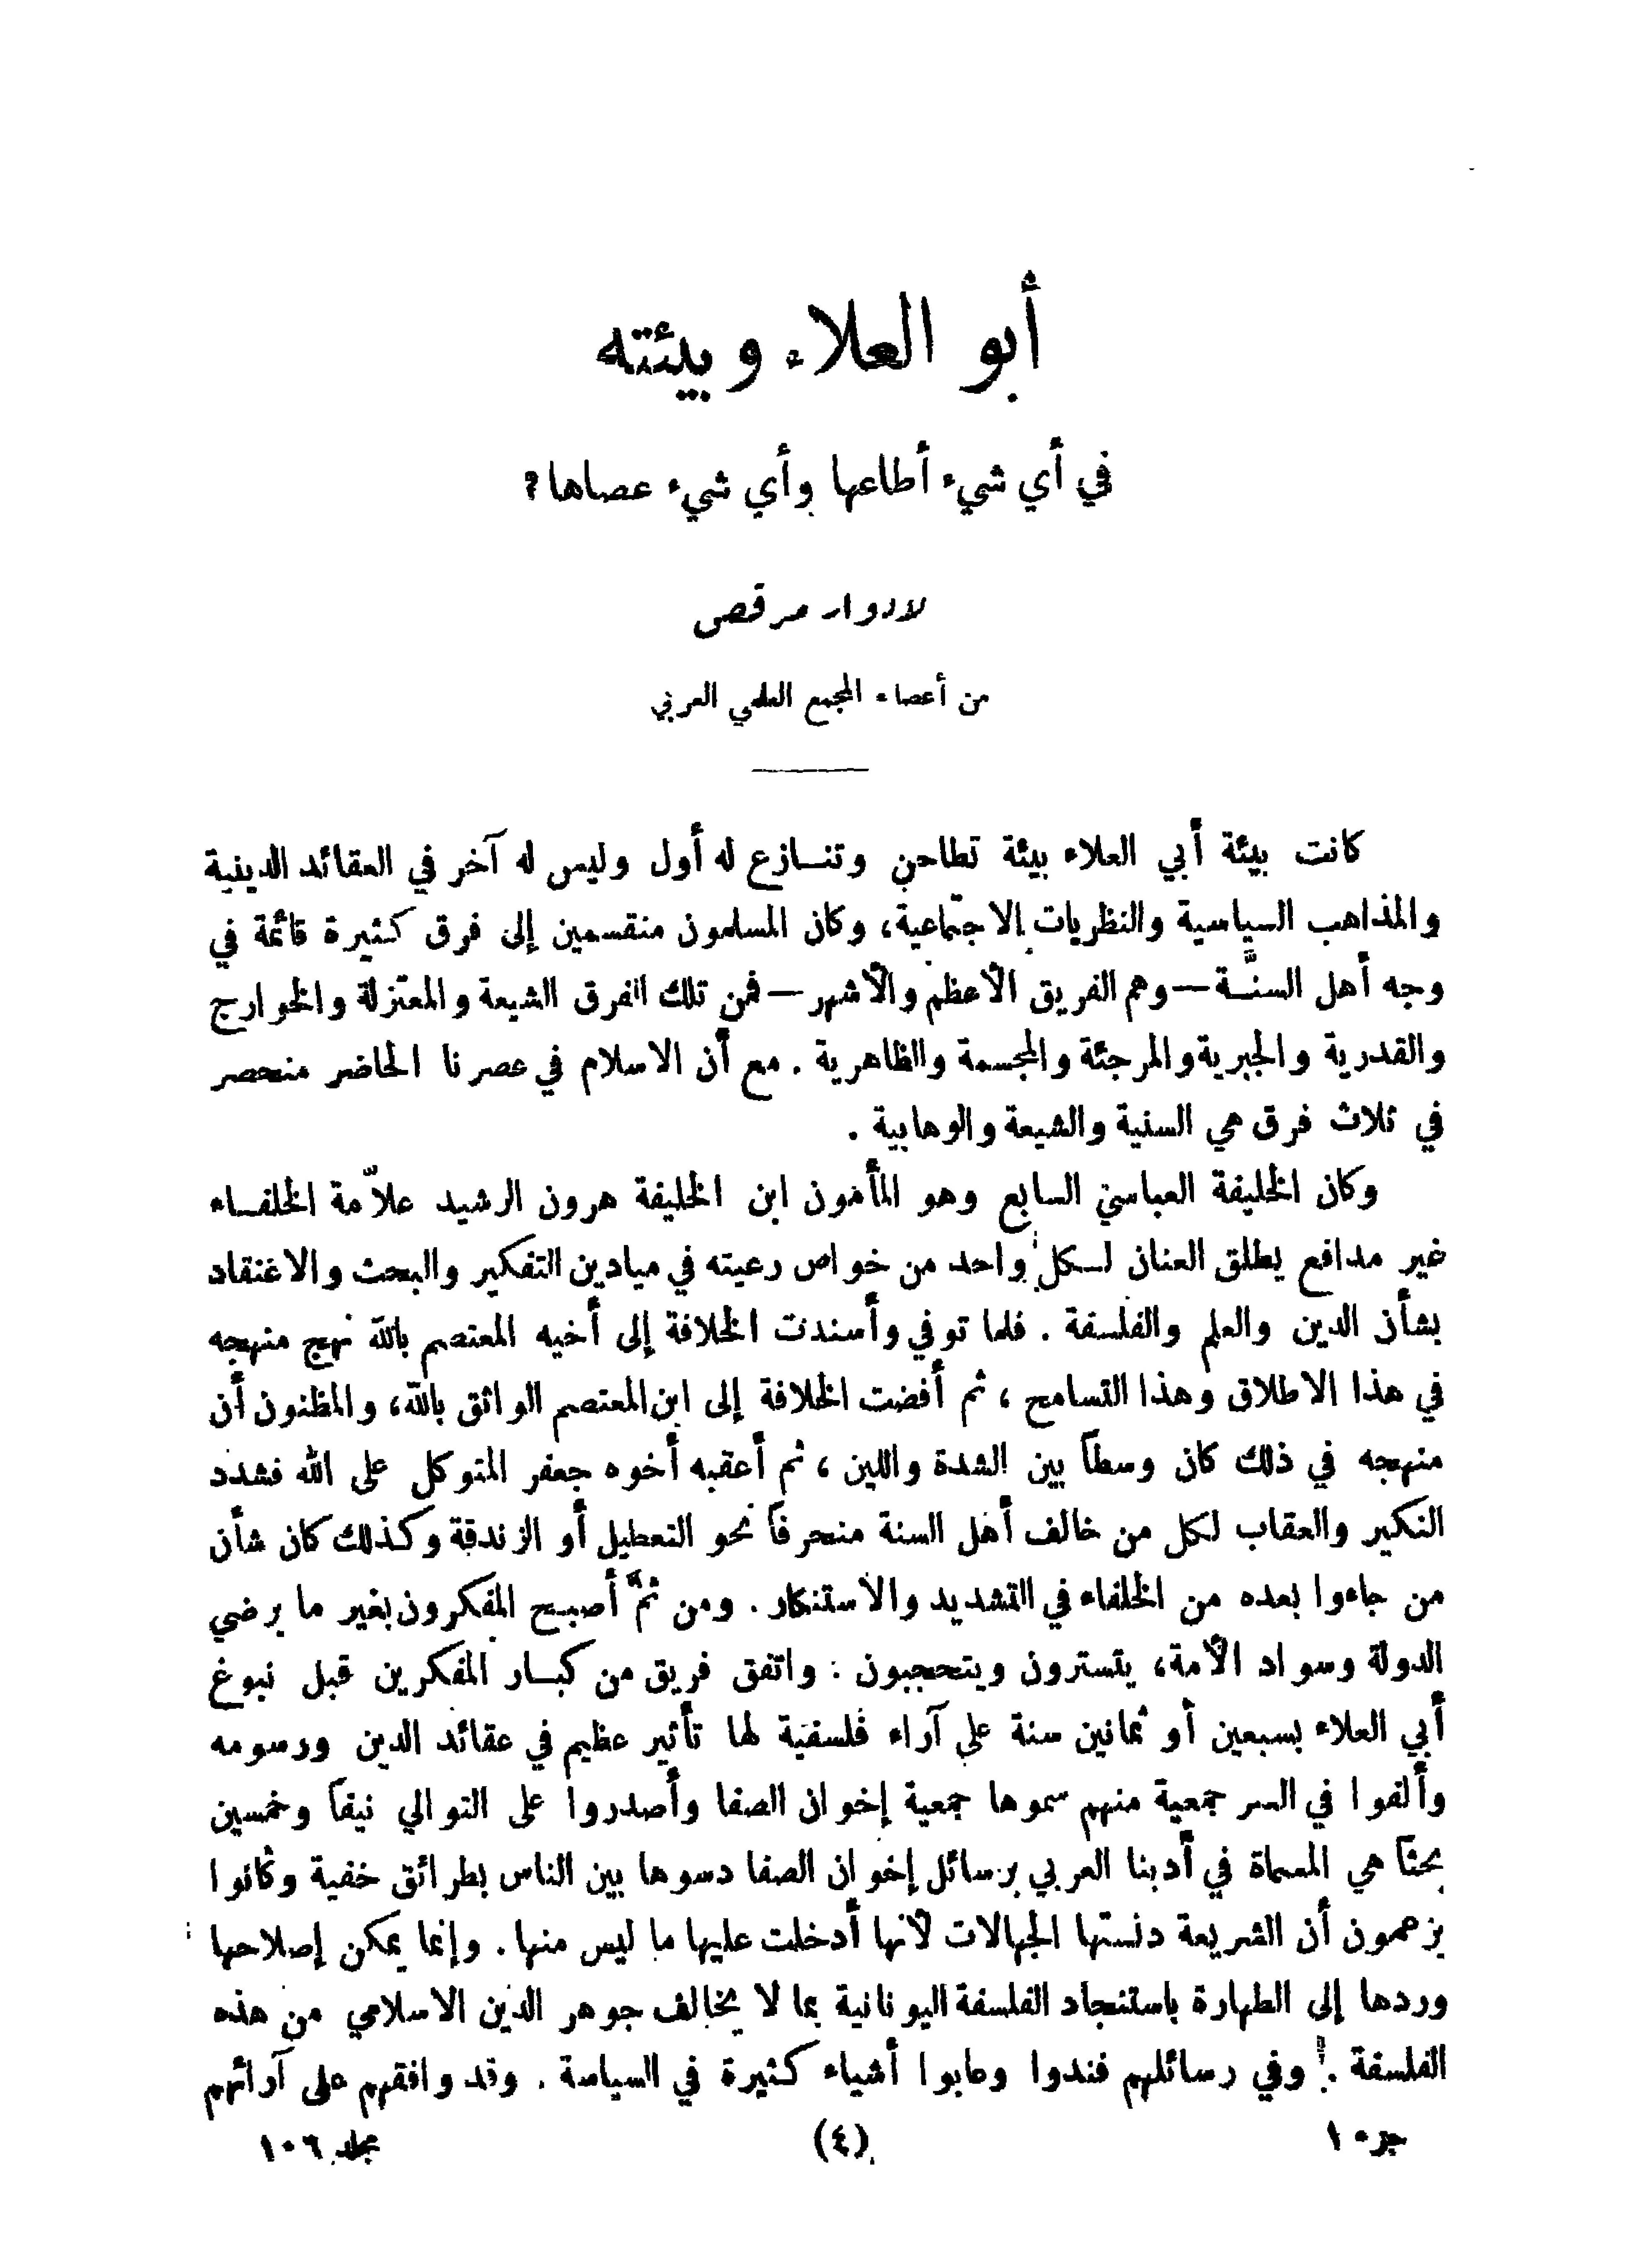 أبو العلاء وبيئته
في أي شيء أطاعها وأي شيء عصاها؟
لادوار مرقص
من أعضاء المجمع العلمي العربي
كانت بيئة أبي العلاء بيئة تطاحن وتنازع له أول وليس له آخر في العقائد الدينية
والمذاهب السياسية والنظريات الاجتماعية، وكان المسلمون منقسمين إلى فرق كثيرة قائمة في
وجه أهل السنَّة — وهم الفريق الأعظم والأشهر — فمن تلك الفرق الشيعة والمعتزلة والخوارج
والقدرية والجبرية والمرجئة والمجسمة والظاهرية . مع أن الاسلام في عصرنا الحاضر منحصر
في ثلاث فرق هي السنية والشيعة والوهابية .
وكان الخليفة العباسي السابع وهو المأمون ابن الخليفة هرون الرشيد علاّمة الخلفاء
غير مدافع يطلق العنان لكل واحد من خواص رعيته في ميادين التفكير والبحث والاعتقاد
بشأن الدين والعلم والفلسفة . فلما توفي وأسندت الخلافة إلى أخيه المعتصم بالله نهج منهجه
في هذا الاطلاق وهذا التسامح ، ثم أفضت الخلافة إلى ابن المعتصم الواثق بالله، والمظنون أن
منهجه في ذلك كان وسطاً بين الشدة واللين ، ثم أعقبه أخوه جعفر المتوكل على الله فشدد
النكير والعقاب لكل من خالف أهل السنة منحرفاً نحو التعطيل أو الزندقة وكذلك كان شأن
من جاءوا بعده من الخلفاء في التشديد والاستنكار . ومن ثمَّ أصبح المفكرون بغير ما يرضي
الدولة وسواد الأمة، يتسترون ويتحجبون : واتفق فريق من كبار المفكرين قبل نبوغ
أبي العلاء بسبعين أو ثمانين سنة على آراء فلسفية لها تأثير عظيم في عقائد الدين ورسومه
وألفوا في السر جمعية منهم سموها جمعية إخوان الصفا وأصدروا على التوالي نيفاً وخمسين
بحثاً هي المسماة في أدبنا العربي برسائل إخوان الصفا دسوها بين الناس بطرائق خفية وكانوا
يزعمون أن الشريعة دنستها الجهالات لأنها أدخلت عليها ما ليس منها . وإنما يمكن إصلاحها
وردها إلى الطهارة باستنجاد الفلسفة اليونانية بما لا يخالف جوهر الدين الاسلامي من هذه
الفلسفة . وفي رسائلهم فندوا وعابوا أشياء كثيرة في السياسة . وقد وافقهم على آرائهم
جزء ١
(٤)
مجلد ١٠٦